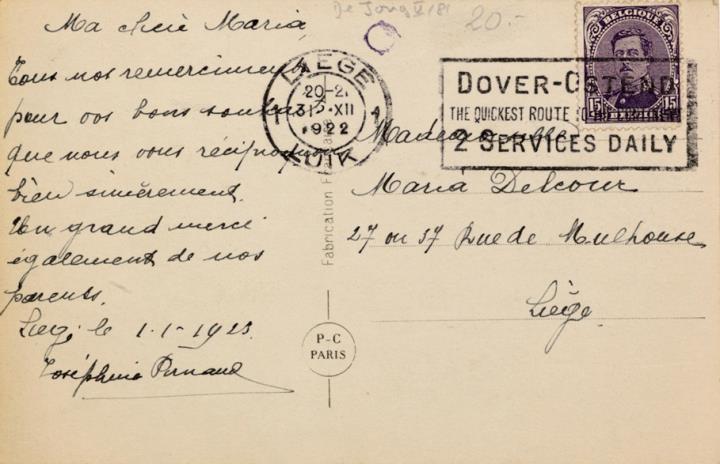 De Jong V/81
20.-
BELGIQUE
15 15
Ma chère Maria,
Tous nos remerciemen
pour vos bons souhai
que nous vous réciproqu
bien sincèrement.
Un grand merci
également de nos
parents.
Liège, le 1-1-1923.
Joséphine
LIEGE
20-21
31-XII
1922
LUIK
DOVER-OSTEND
THE QUICKEST ROUTE
2 SERVICES DAILY
Mademoiselle
Maria Delcour
27 ou 37 Rue de Mulhouse
Liège.
Fabrication Française
P-C
PARIS